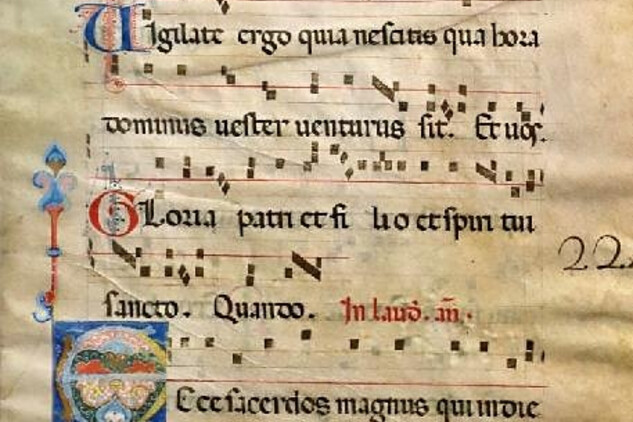 Uigilate ergo quia nescitis qua hora
dominus uester uenturus sit. Et uos.
Gloria patri et fi lio et spiri tui
sancto. Quando. In laud. an.
22
Ecce sacerdos magnus qui in die